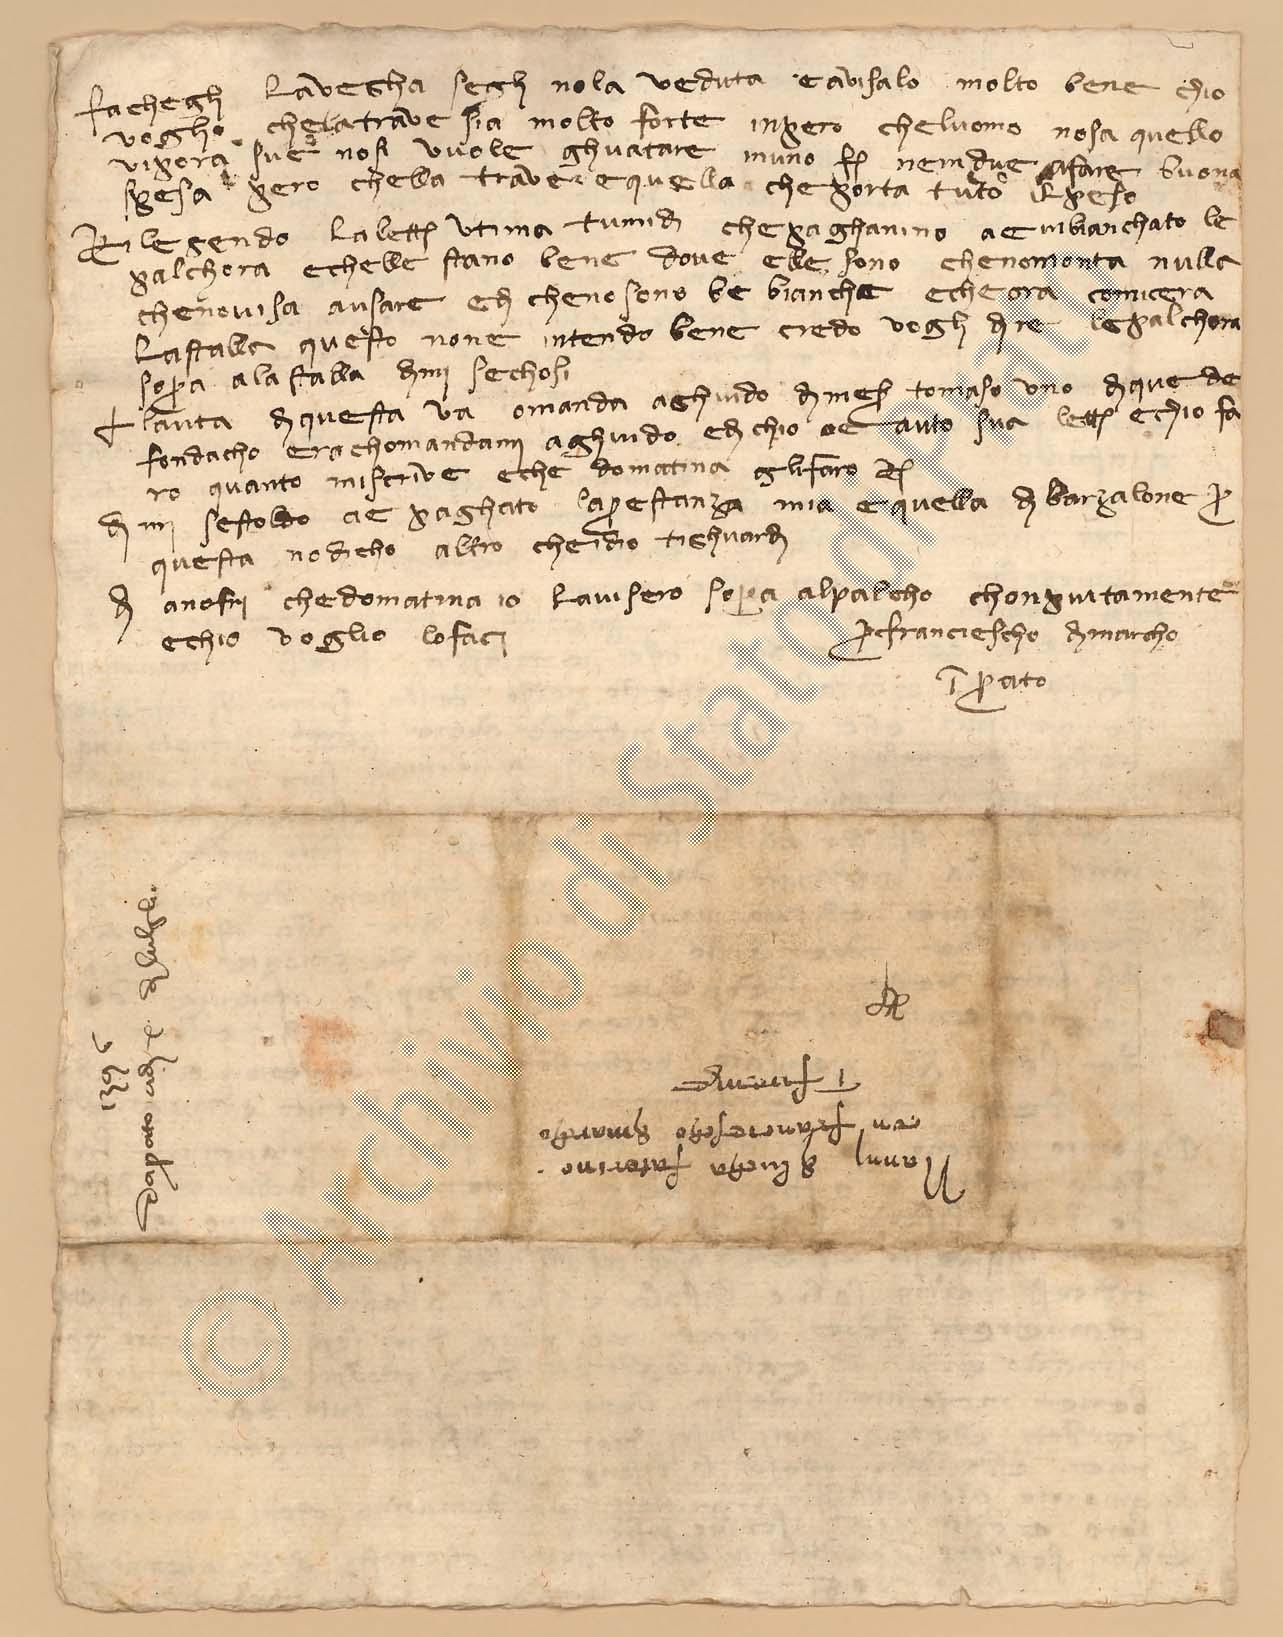 fachegli la vegha segli nola veduta e avisalo molto bene chio
voglio chela trave sia molto forte inpero che luomo nosa quello
vi pora sue nosi vuole ghuatare inuno fi nein due afare buona
spesa pero chella trave e quella che porta tuto il peso
Rilegendo la lettera utima tu mi di che paghanino ae inbianchato le
palchora e chelle stano bene dove elle sono e che no monta nulla
che novisa a usare e di che no sono be bianche e che ora comicera
la stalla questo none intendo bene credo vogli dire le palchora
sopra a la stalla dimi se chosi
lauta di questa va o manda a ghuido di messer tomaso uno di que de
fondacho e rachomandami a ghuido e di chio oe auto sua lettera e chio fa
ro quanto mi scrive e che domatina gli faro
di mi se stoldo ae paghato la prestanza mia e quella di barzalone per
questa no dicho altro che idio ti ghuardi
di a nofri che domatina io lavisero sopra al palcho chonpiutamente
e chio voglio lo faci
per franciescho di marcho
in prato
da prato a di di luglio
1396
Nanni di lucha
con franciescho di marcho
in firenze
© Archivio di Stato di Prato